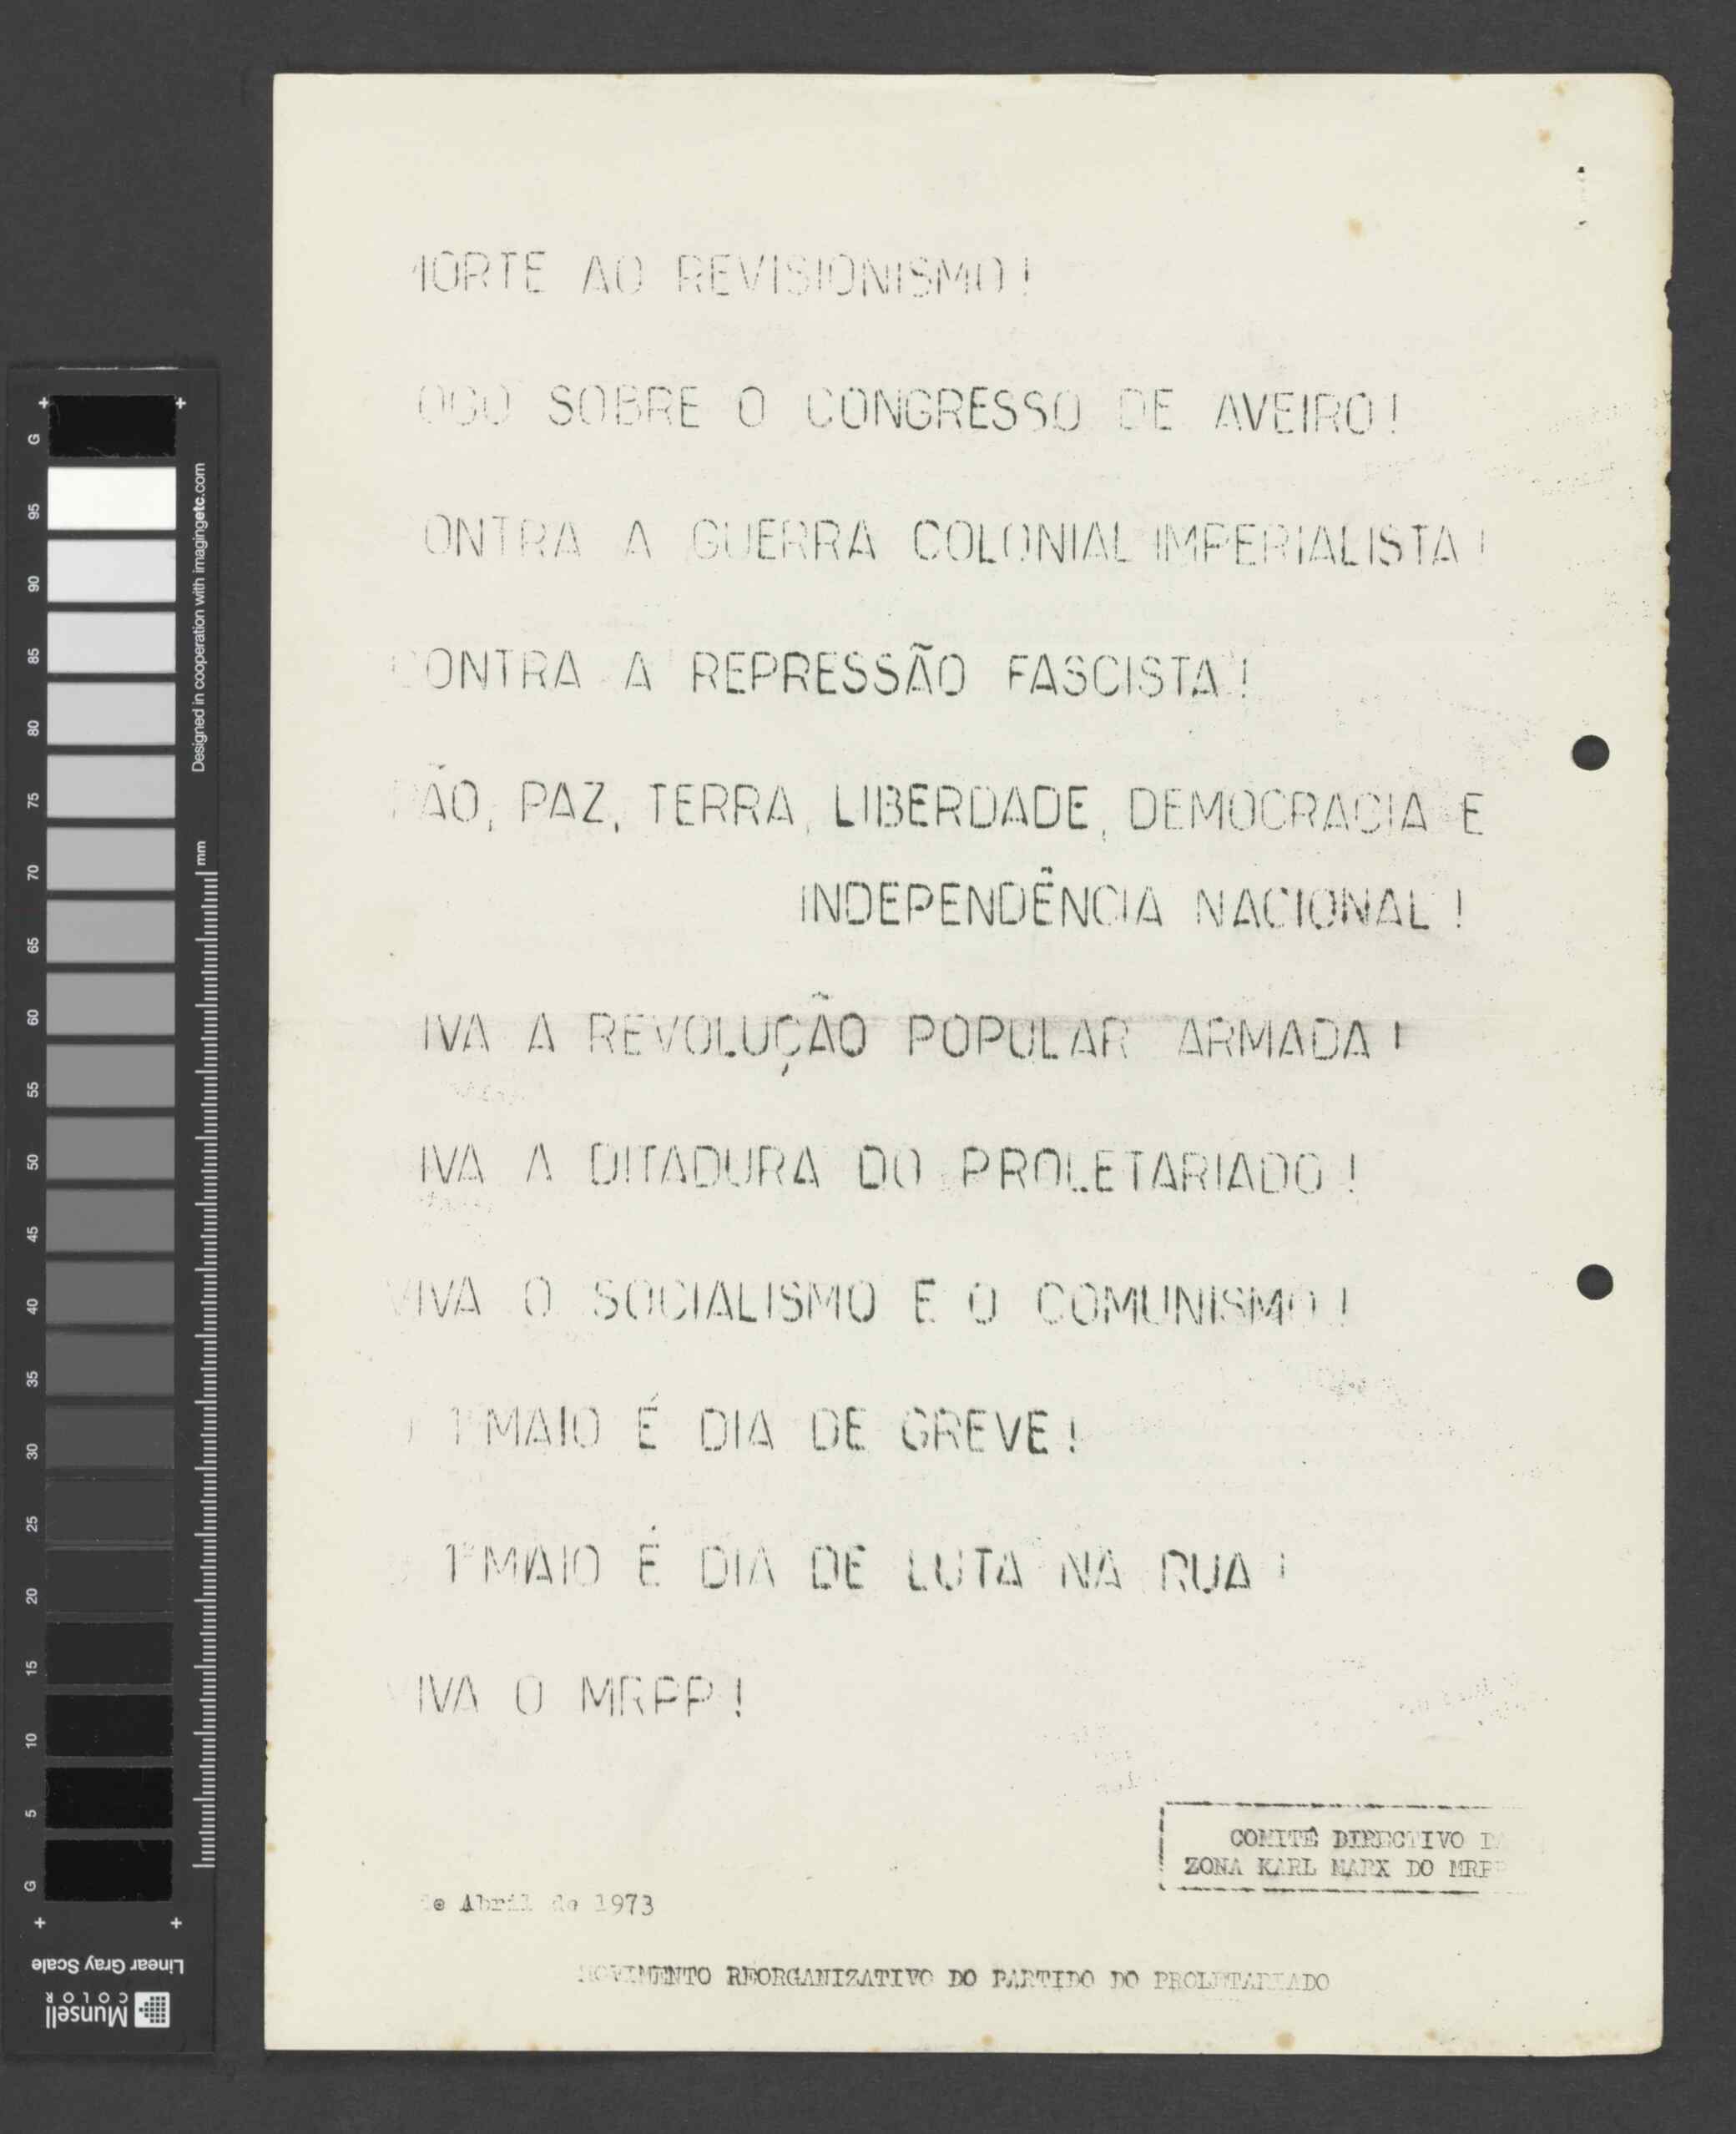 MORTE AO REVISIONISMO!
OGO SOBRE O CONGRESSO DE AVEIRO!
ONTRA A GUERRA COLONIAL IMPERIALISTA!
CONTRA A REPRESSÃO FASCISTA!
PÃO, PAZ, TERRA, LIBERDADE, DEMOCRACIA E
INDEPENDÊNCIA NACIONAL!
IVA A REVOLUÇÃO POPULAR ARMADA!
IVA A DITADURA DO PROLETARIADO!
VIVA O SOCIALISMO E O COMUNISMO!
1º MAIO É DIA DE GREVE!
1º MAIO É DIA DE LUTA NA RUA!
IVA O MRPP!
COMITÉ DIRECTIVO DA
ZONA KARL MARX DO MRPP
de Abril de 1973
MOVIMENTO REORGANIZATIVO DO PARTIDO DO PROLETARIADO
G 95 90 85 80 75 70 65 60 55 50 45 40 35 30 25 20 15 10 5 G
Designed in cooperation with imagingetc.com
mm
Linear Gray Scale
Munsell
COLOR